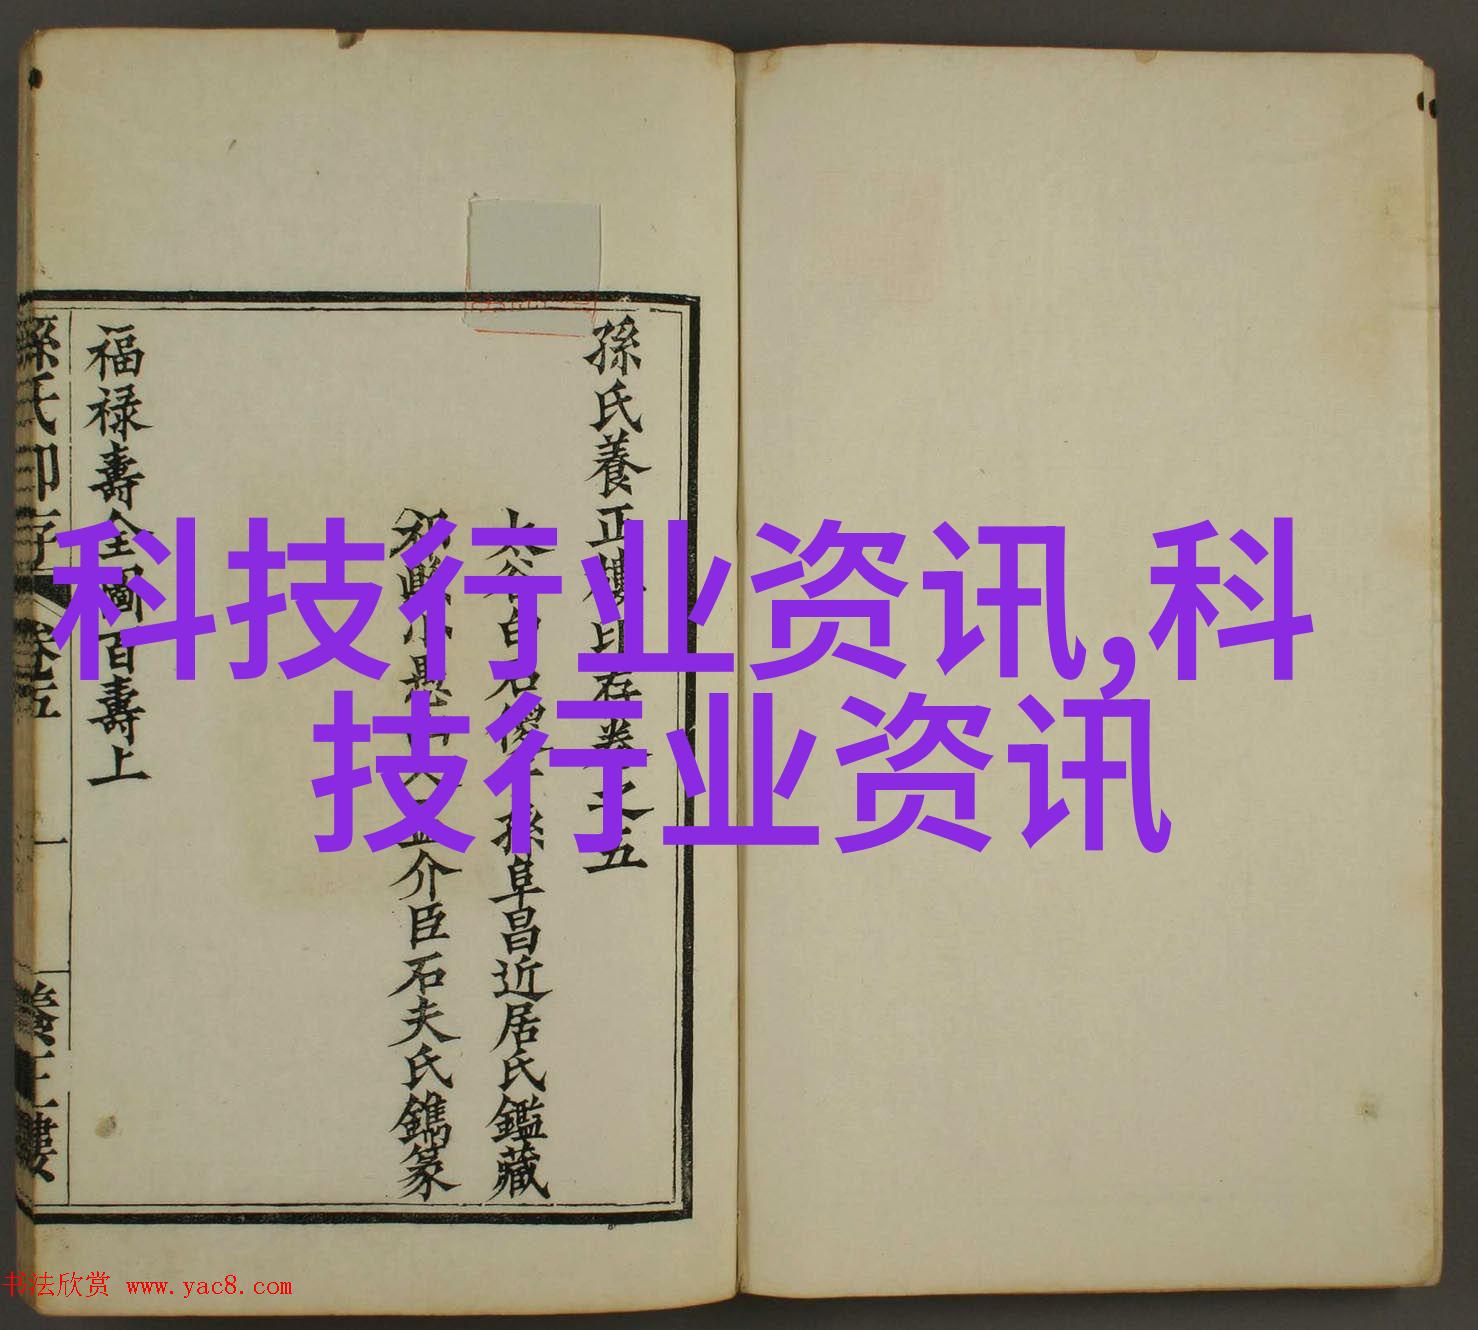 孫氏養正樓印存卷之五
太谷白石傻生孫阜昌近居氏鑑藏
介臣石夫氏鐫篆
福禄壽全圖百壽上
孫氏印存
卷五
一
養正樓
科技行业资讯,科
技行业资讯
书法欣赏 www.yac8.com